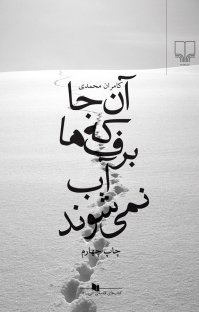 کامران محمدی
آن جا
که
برف‌ها
آب
نمی‌شوند
چاپ چهارم